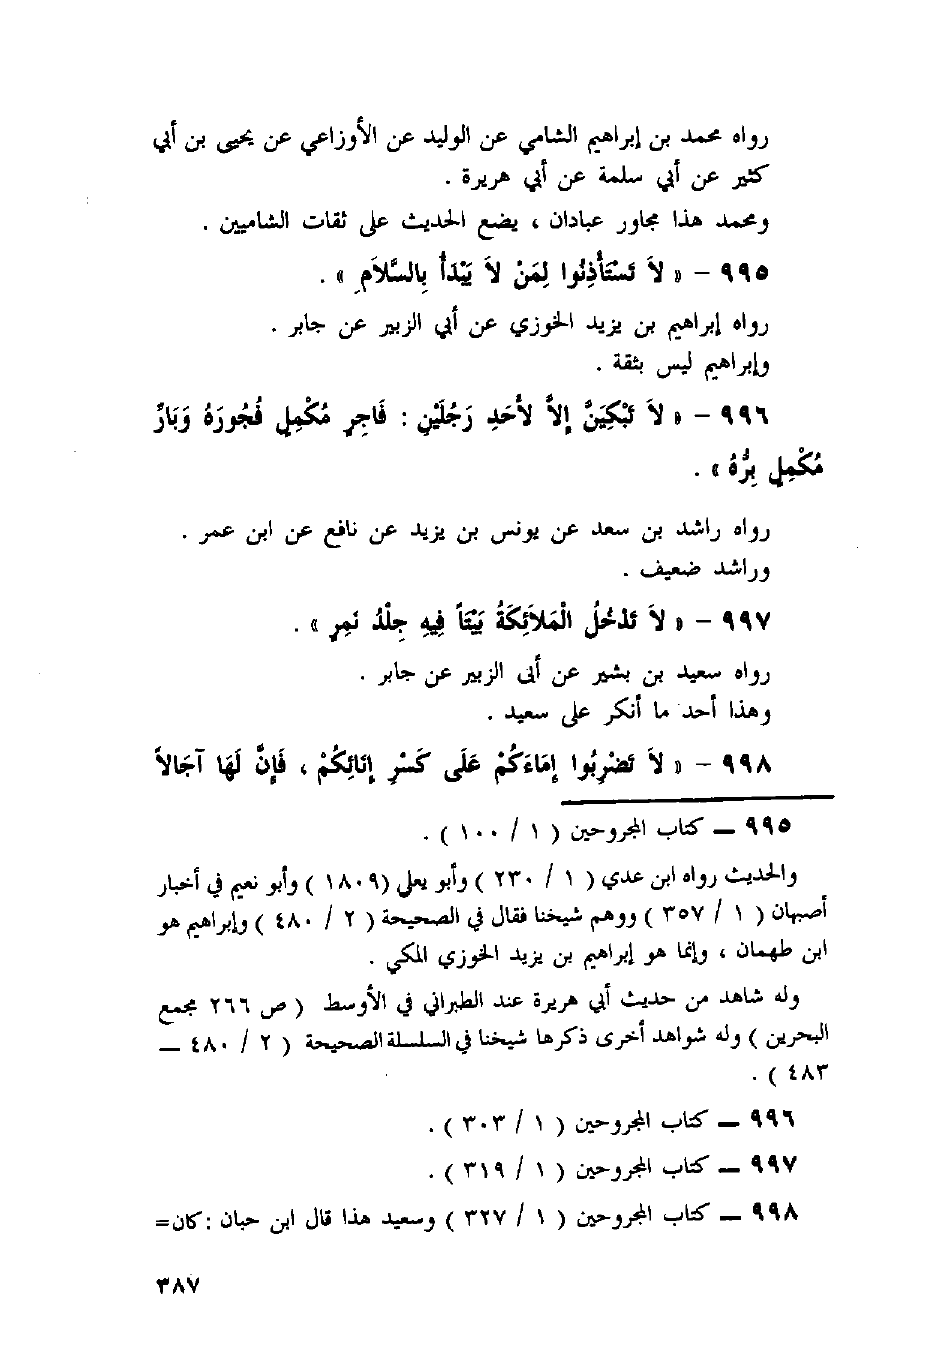 رواه محمد بن إبراهيم الشامي عن الوليد عن الأوزاعي عن يحيى بن أبي
كثير عن أبي سلمة عن أبي هريرة .
ومحمد هذا مجاور عبادان ، يضع الحديث على ثقات الشاميين .
٩٩٥ – « لاَ تَسْتَأْذِنُوا لِمَنْ لاَ يَبْدَأُ بِالسَّلاَمِ » .
رواه إبراهيم بن يزيد الخوزي عن أبي الزبير عن جابر .
وإبراهيم ليس بثقة .
٩٩٦ – « لاَ تَبْكِيَنَّ إِلاَّ لأَحَدِ رَجُلَيْنِ : فَاجِرٍ مُكْمِلٍ فُجُورَهُ وَبَارٍّ
مُكْمِلٍ بِرُّهُ » .
رواه راشد بن سعد عن يونس بن يزيد عن نافع عن ابن عمر .
وراشد ضعيف .
٩٩٧ – « لاَ تَدْخُلُ الْمَلاَئِكَةُ بَيْتَاً فِيهِ جِلْدُ نَمِرٍ » .
رواه سعيد بن بشير عن أبى الزبير عن جابر .
وهذا أحد ما أنكر على سعيد .
٩٩٨ – « لاَ تَضْرِبُوا إِمَاءَكُمْ عَلَى كَسْرِ إِنَائِكُمْ ، فَإِنَّ لَهَا آجَالاً
٩٩٥ – كتاب المجروحين ( ١ / ١٠٠ ) .
والحديث رواه ابن عدي ( ١ / ٢٣٠ ) وأبو يعلي (١٨٠٩ ) وأبو نعيم في أخبار
أصبهان ( ١ / ٣٥٧ ) ووهم شيخنا فقال في الصحيحة ( ٢ / ٤٨٠ ) وإبراهيم هو
ابن طهمان ، وإنما هو إبراهيم بن يزيد الخوزي المكي .
وله شاهد من حديث أبي هريرة عند الطبراني في الأوسط ( ص ٢٦٦ مجمع
البحرين ) وله شواهد أخرى ذكرها شيخنا في السلسلة الصحيحة ( ٢ / ٤٨٠ –
٤٨٣ ) .
٩٩٦ – كتاب المجروحين ( ١ / ٣٠٣ ) .
٩٩٧ – كتاب المجروحين ( ١ / ٣١٩ ) .
٩٩٨ – كتاب المجروحين ( ١ / ٣٢٧ ) وسعيد هذا قال ابن حبان :كان=
٣٨٧